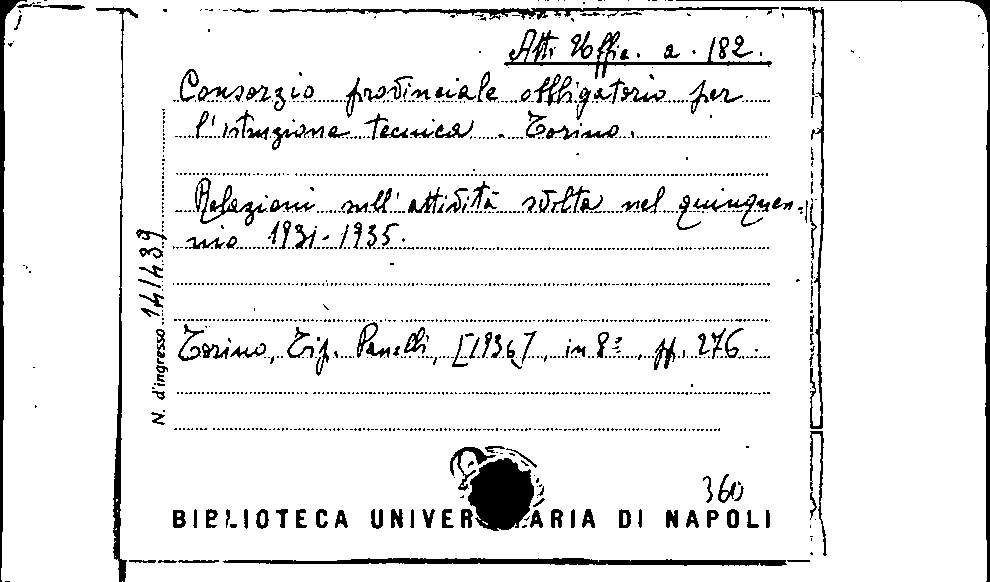 Atti Uffic. a. 182.
Consorzio provinciale obbligatorio per
l'istruzione tecnica. Torino.
Relazioni sull'attività svolta nel quinquen-
nio 1931-1935.
Torino, Tip. Panelli, [1936], in 8º, pp. 276.
N. d'ingresso 141439
360
BIBLIOTECA UNIVER ARIA DI NAPOLI